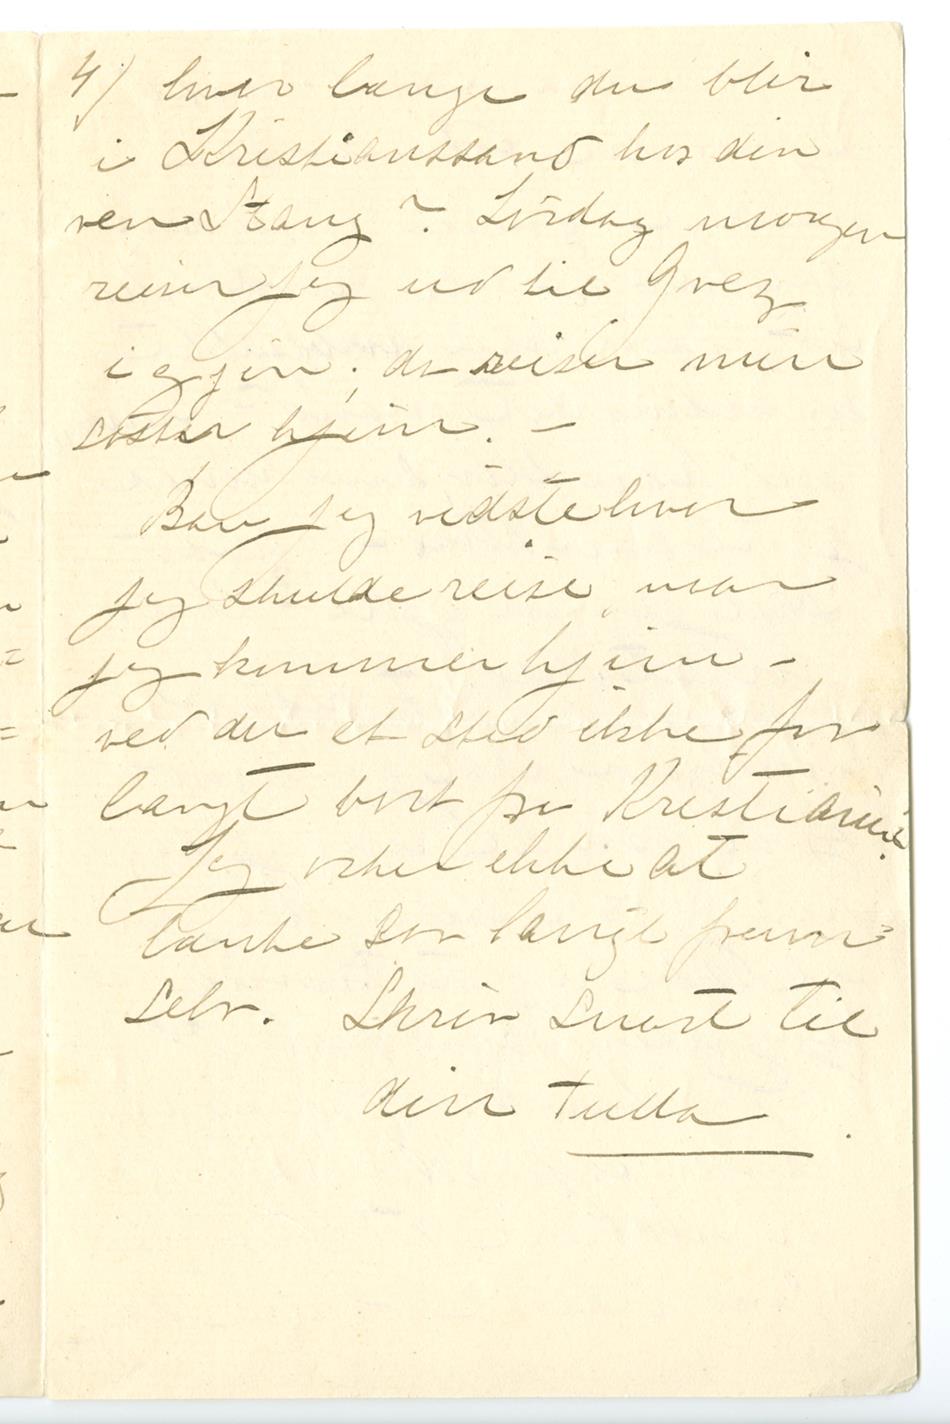 4) hvor længe du blir
i Kristianssand hos din
ven Stang? Lørdag morgen
reiser jeg ud til Grez
igjen; da reiser min
søster hjem. —
Bare jeg vidste hvor
jeg skulde reise, naar
jeg kommer hjem —
ved du et sted ikke for
langt bort fra Kristiania.
Jeg orker ikke at
tænke saa langt frem=
selv. Skriv snart til
din Tulla.